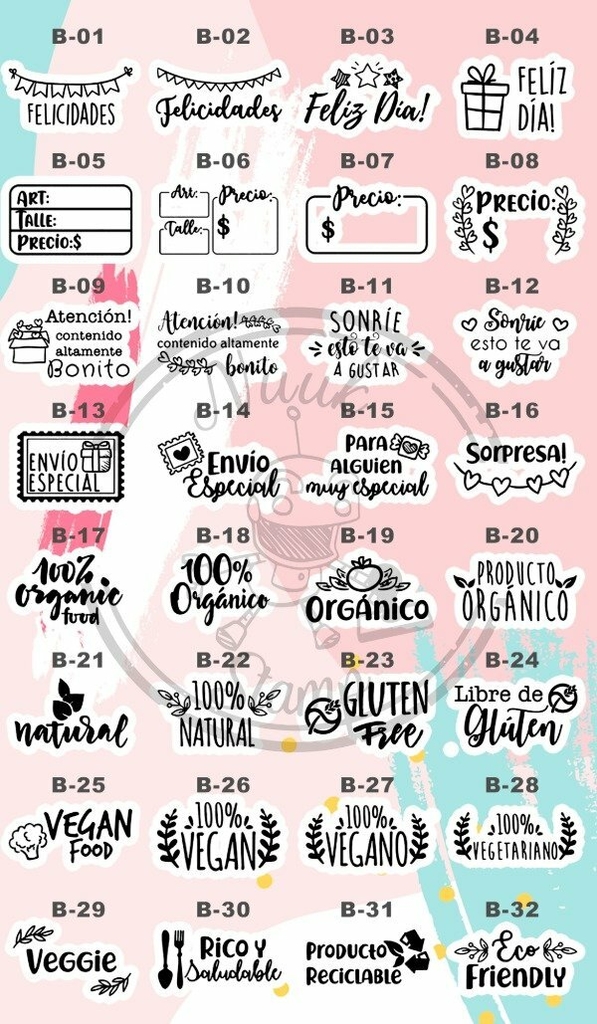 B-01
B-02
B-03
B-04
FELICIDADES
Felicidades
Feliz Día!
FELÍZ
DÍA!
B-05
B-06
B-07
B-08
ART:
TALLE:
PRECIO:$
Art:
Talle:
Precio:
$
Precio:
$
PRECIO:
$
B-09
B-10
B-11
B-12
Atención!
contenido
altamente
Bonito
Atención!
contenido altamente
bonito
SONRÍE
esto te va
A GUSTAR
Sonríe
esto te va
a gustar
B-13
B-14
B-15
B-16
ENVÍO
ESPECIAL
Envío
Especial
Para
alguien
muy especial
Sorpresa!
B-17
B-18
B-19
B-20
100%
organic
food
100%
Orgánico
Orgánico
PRODUCTO
ORGÁNICO
B-21
B-22
B-23
B-24
natural
100%
NATURAL
GLUTEN
Free
Libre de
Glúten
B-25
B-26
B-27
B-28
VEGAN
FOOD
100%
VEGAN
100%
VEGANO
100%
VEGETARIANO
B-29
B-30
B-31
B-32
Veggie
Rico y
Saludable
Producto
Reciclable
Eco
Friendly